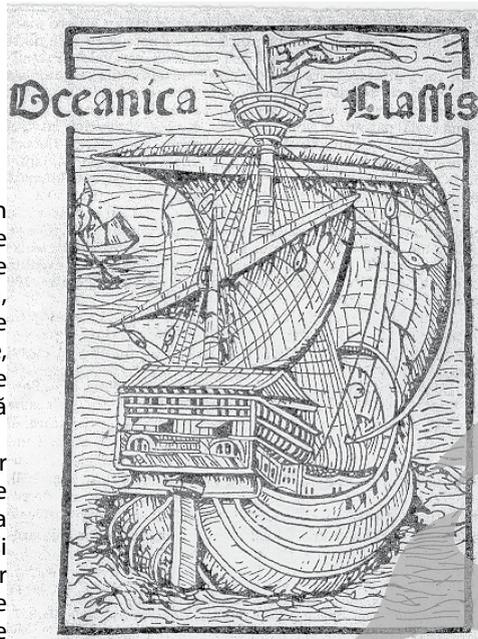 Oceanica Classis
n
e
e
,
e
,
e
ă
r
e
a
i
r
e
e